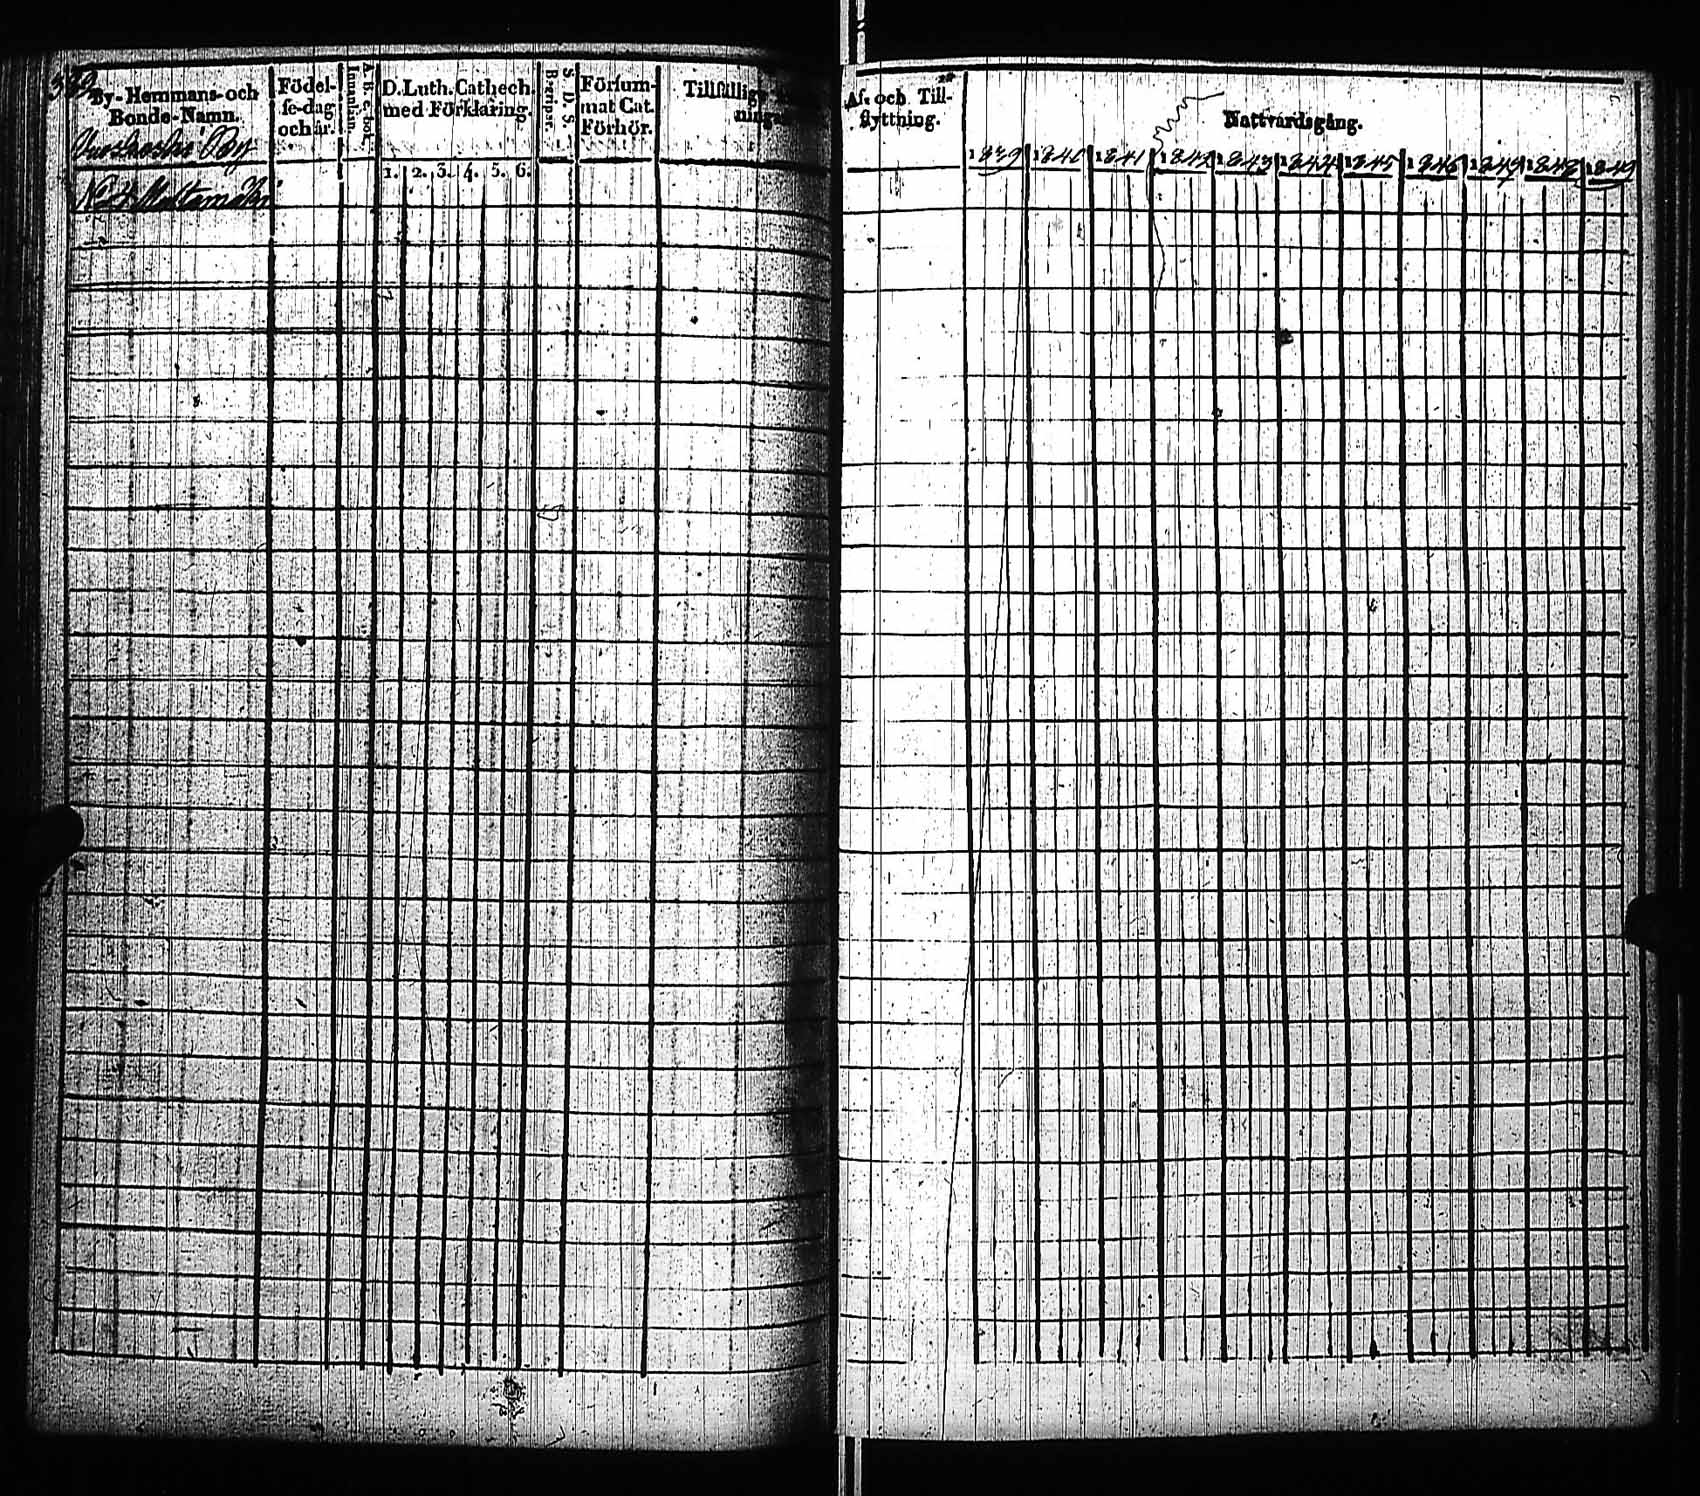 By- Hemmans- och Bonde-Namn.
Födel-
se-dag
och år.
Innanläs.
A B c bok.
D. Luth. Cathech.
med Förklaring.
1. 2. 3. 4. 5. 6.
S. D. S.
Begripe.
Försum-
mat Cat.
Förhör.
By
Af- och Till-
flyttning.
Nattvardsgång.
1839 1840 1841 1842 1843 1844 1845 1846 1847 1848 1849